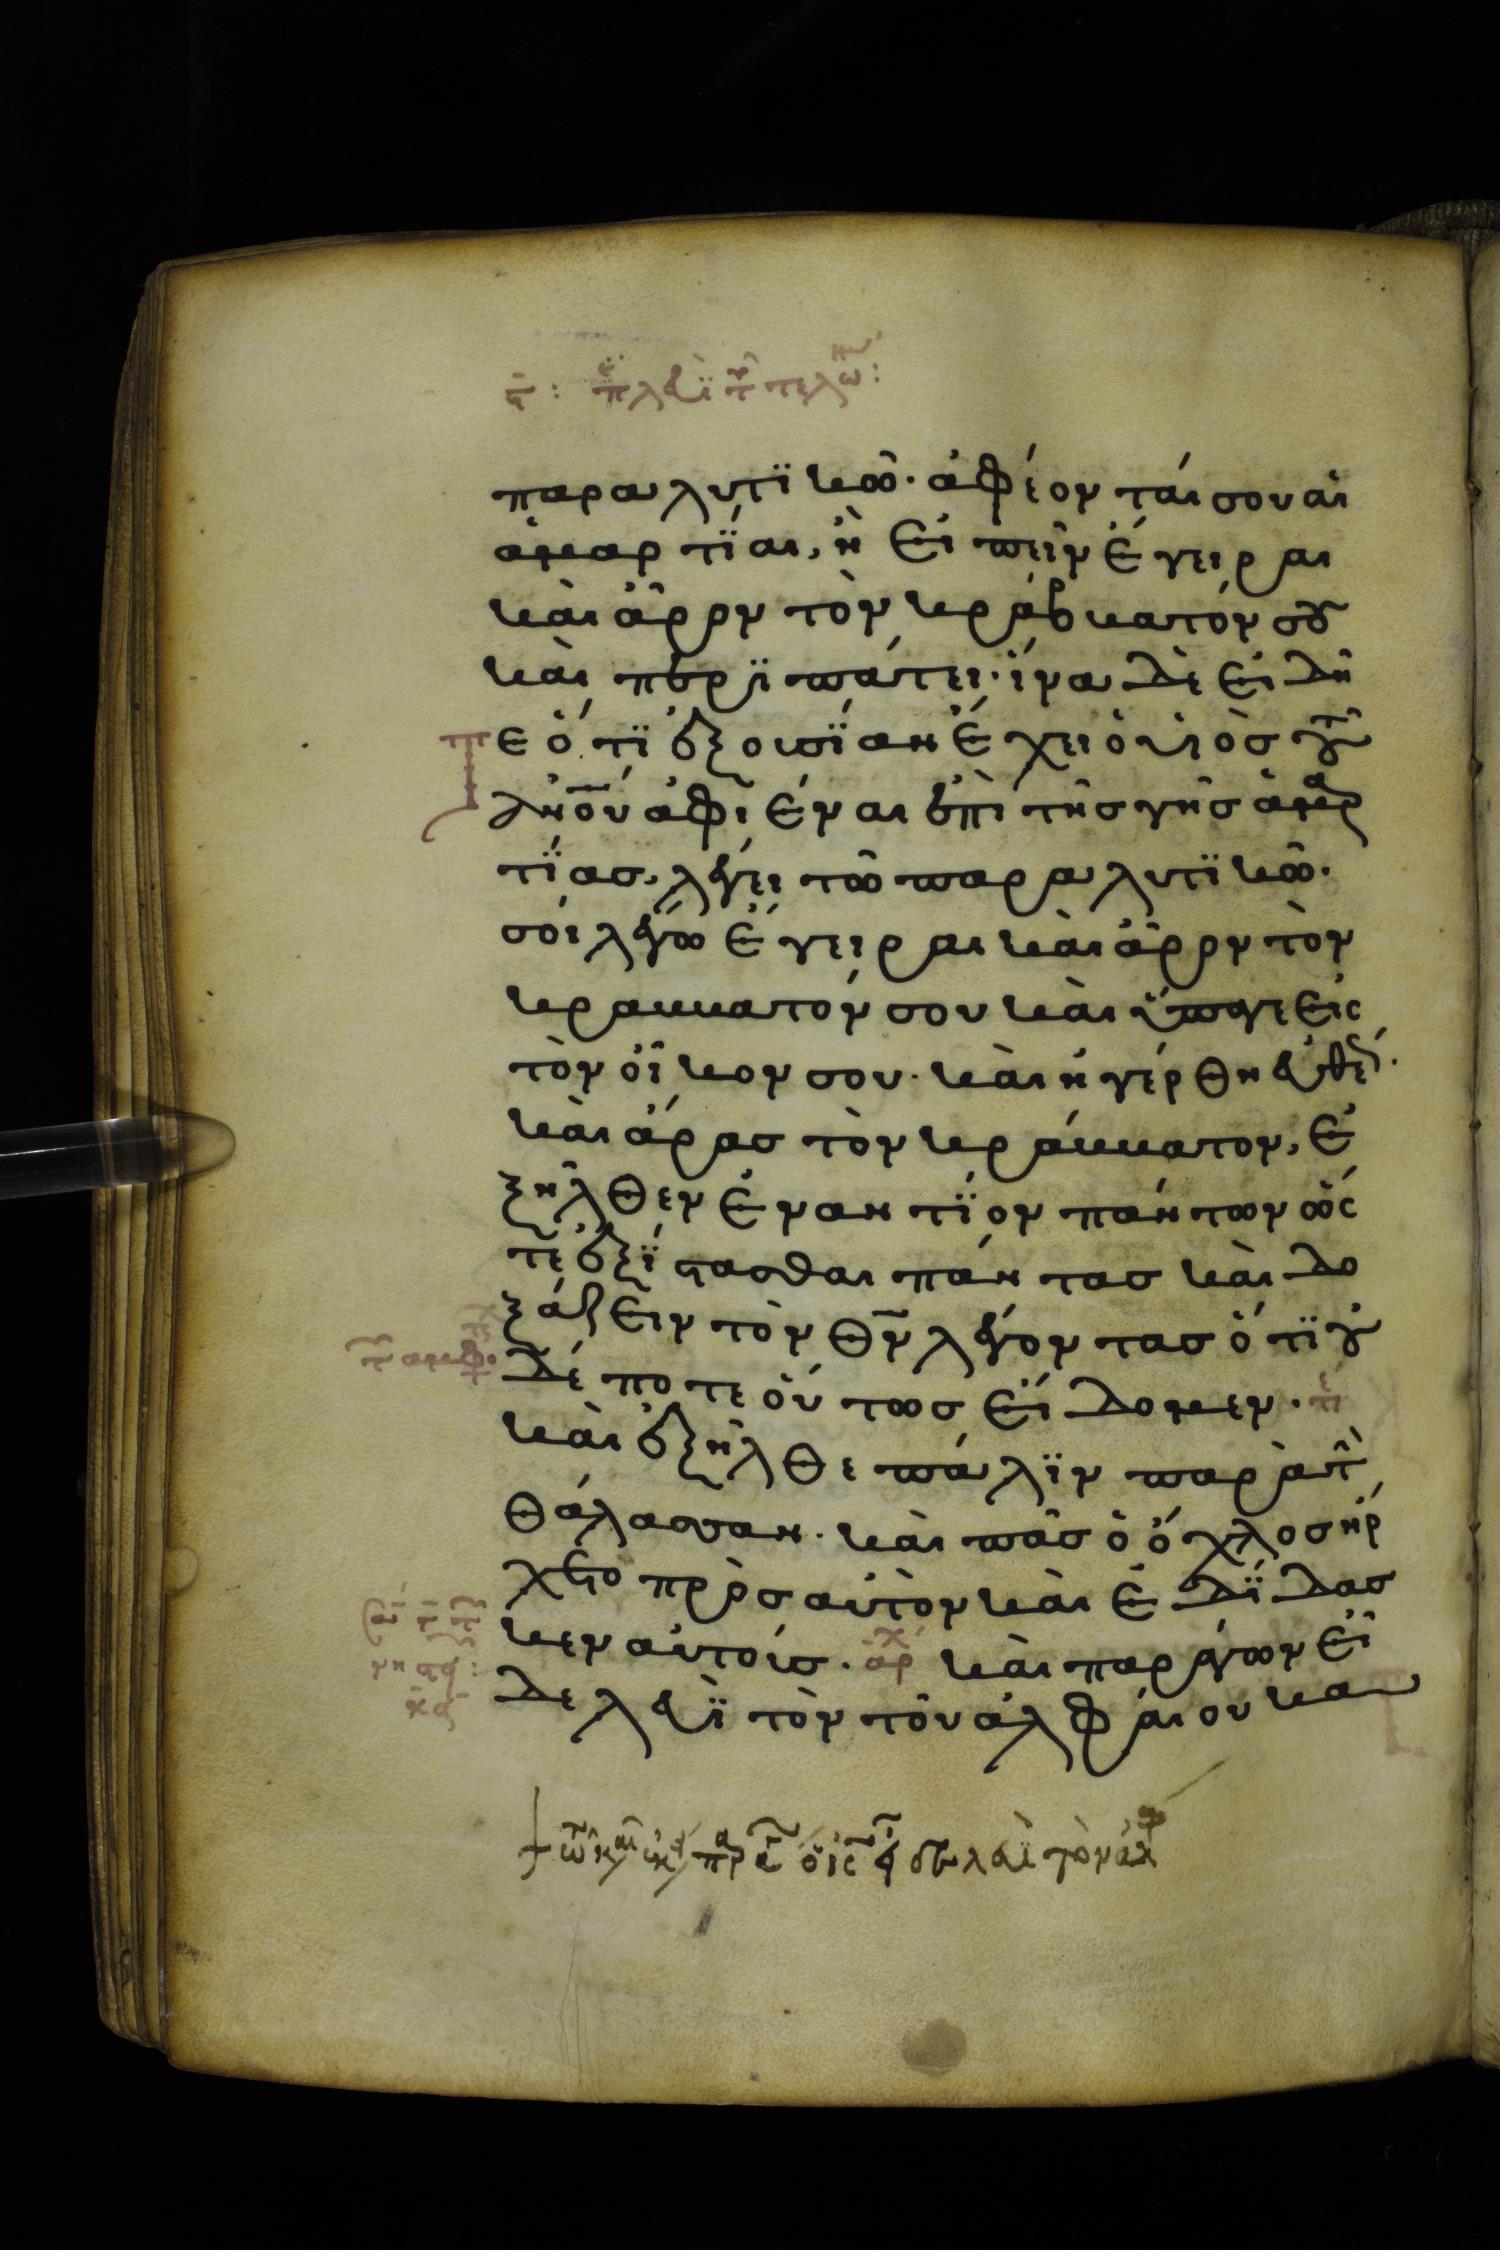 παραλυτϊκῶ· ἀφέονταί σου αἱ
ἁμαρτΐαι, ἢ εἰπεῖν ἔγειραι
καὶ ἆρον τὸν κράβκατόν σȣ
καὶ περϊπάτει· ἵνα δὲ εἰδῆ
τε ὅτϊ ἐξουσΐαν ἔχει ὁ υἱὸσ τȣ͂
ἀν̅ο̅υ̅ ἀφιέναι ἐπὶ τῆσ γῆσ ἁμαρ
τΐασ, λέγει τῶ παραλυτϊκῶ·
σοί λέγω ἔγειραι καὶ ἆρον τὸν
κρακκατόν σου καὶ ὕπαγε εἰς
τὸν οἶκον σου· καὶ ἠγέρθη ἐυθέ·
καὶ ἄρασ τὸν κράκκατον, ἐ
ξῆλθεν ἐναντΐον πάντων ὥς
τε ἐξΐστασθαι πάντασ καὶ δο
ξάζειν τὸν θ̅ν̅ λέγοντασ ὅτϊ ȣ̓
δέποτε οὕτωσ εἴδομεν·
καὶ ἐξῆλθε πάλϊν παρὰ τ
θάλασσαν· καὶ πᾶσ ὁ ὄχλοσ ἤρ
χετο πρὸσ αὐτὸν καὶ ἐδΐδασ
κεν αὐτοίσ· ἀρχ καὶ παράγων εἶ
δε λευῒ τὸν τοῦ ἀλφαίου κα